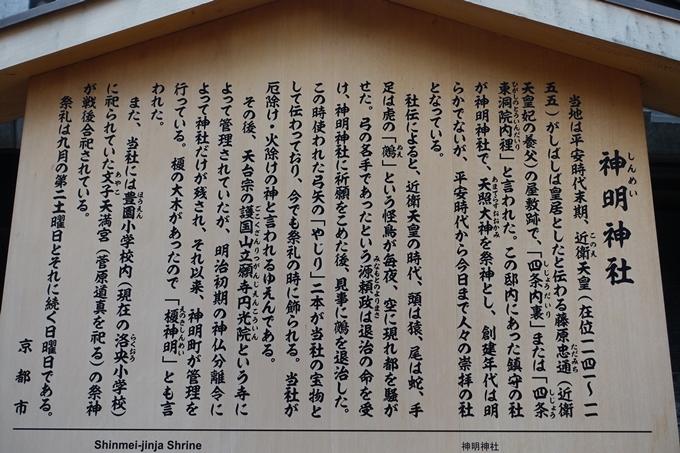 神明神社
しんめい
当地は平安時代末期、近衛天皇(在位一一四一〜一一
このえ
五五)がしばしば皇居としたと伝わる藤原忠通(近衛
ただみち
天皇妃の養父)の屋敷跡で、「四条内裏」または「四条
しじょうだいり
しじょう
東洞院内裡」と言われた。この邸内にあった鎮守の社
ひがしのとういんだいり
が神明神社で、天照大神を祭神とし、創建年代は明
あまてらすおおかみ
らかでないが、平安時代から今日まで人々の崇拝の社
となっている。
社伝によると、近衛天皇の時代、頭は猿、尾は蛇、手
足は虎の「鵼」という怪鳥が毎夜、空に現れ都を騒が
ぬえ
せた。弓の名手であったという源頼政は退治の命を受
みなもとのよりまさ
け、神明神社に祈願をこめた後、見事に鵼を退治した。
この時使われた弓矢の「やじり」二本が当社の宝物と
して伝わっており、今でも祭礼の時に飾られる。当社が
厄除け・火除けの神と言われるゆえんである。
その後、天台宗の護国山立願寺円光院という寺に
ごこくさんりつがんじえんこういん
よって管理されていたが、明治初期の神仏分離令に
よって神社だけが残され、それ以来、神明町が管理を
行っている。榎の大木があったので「榎神明」とも言
えのきしんめい
われた。
また、当社には豊園小学校内(現在の洛央小学校)
ほうえん
らくおう
に祀られていた文子天満宮(菅原道真を祀る)の祭神
あやこ
が戦後合祀されている。
祭礼は九月の第二土曜日とそれに続く日曜日である。
京都市
Shinmei-jinja Shrine
神明神社